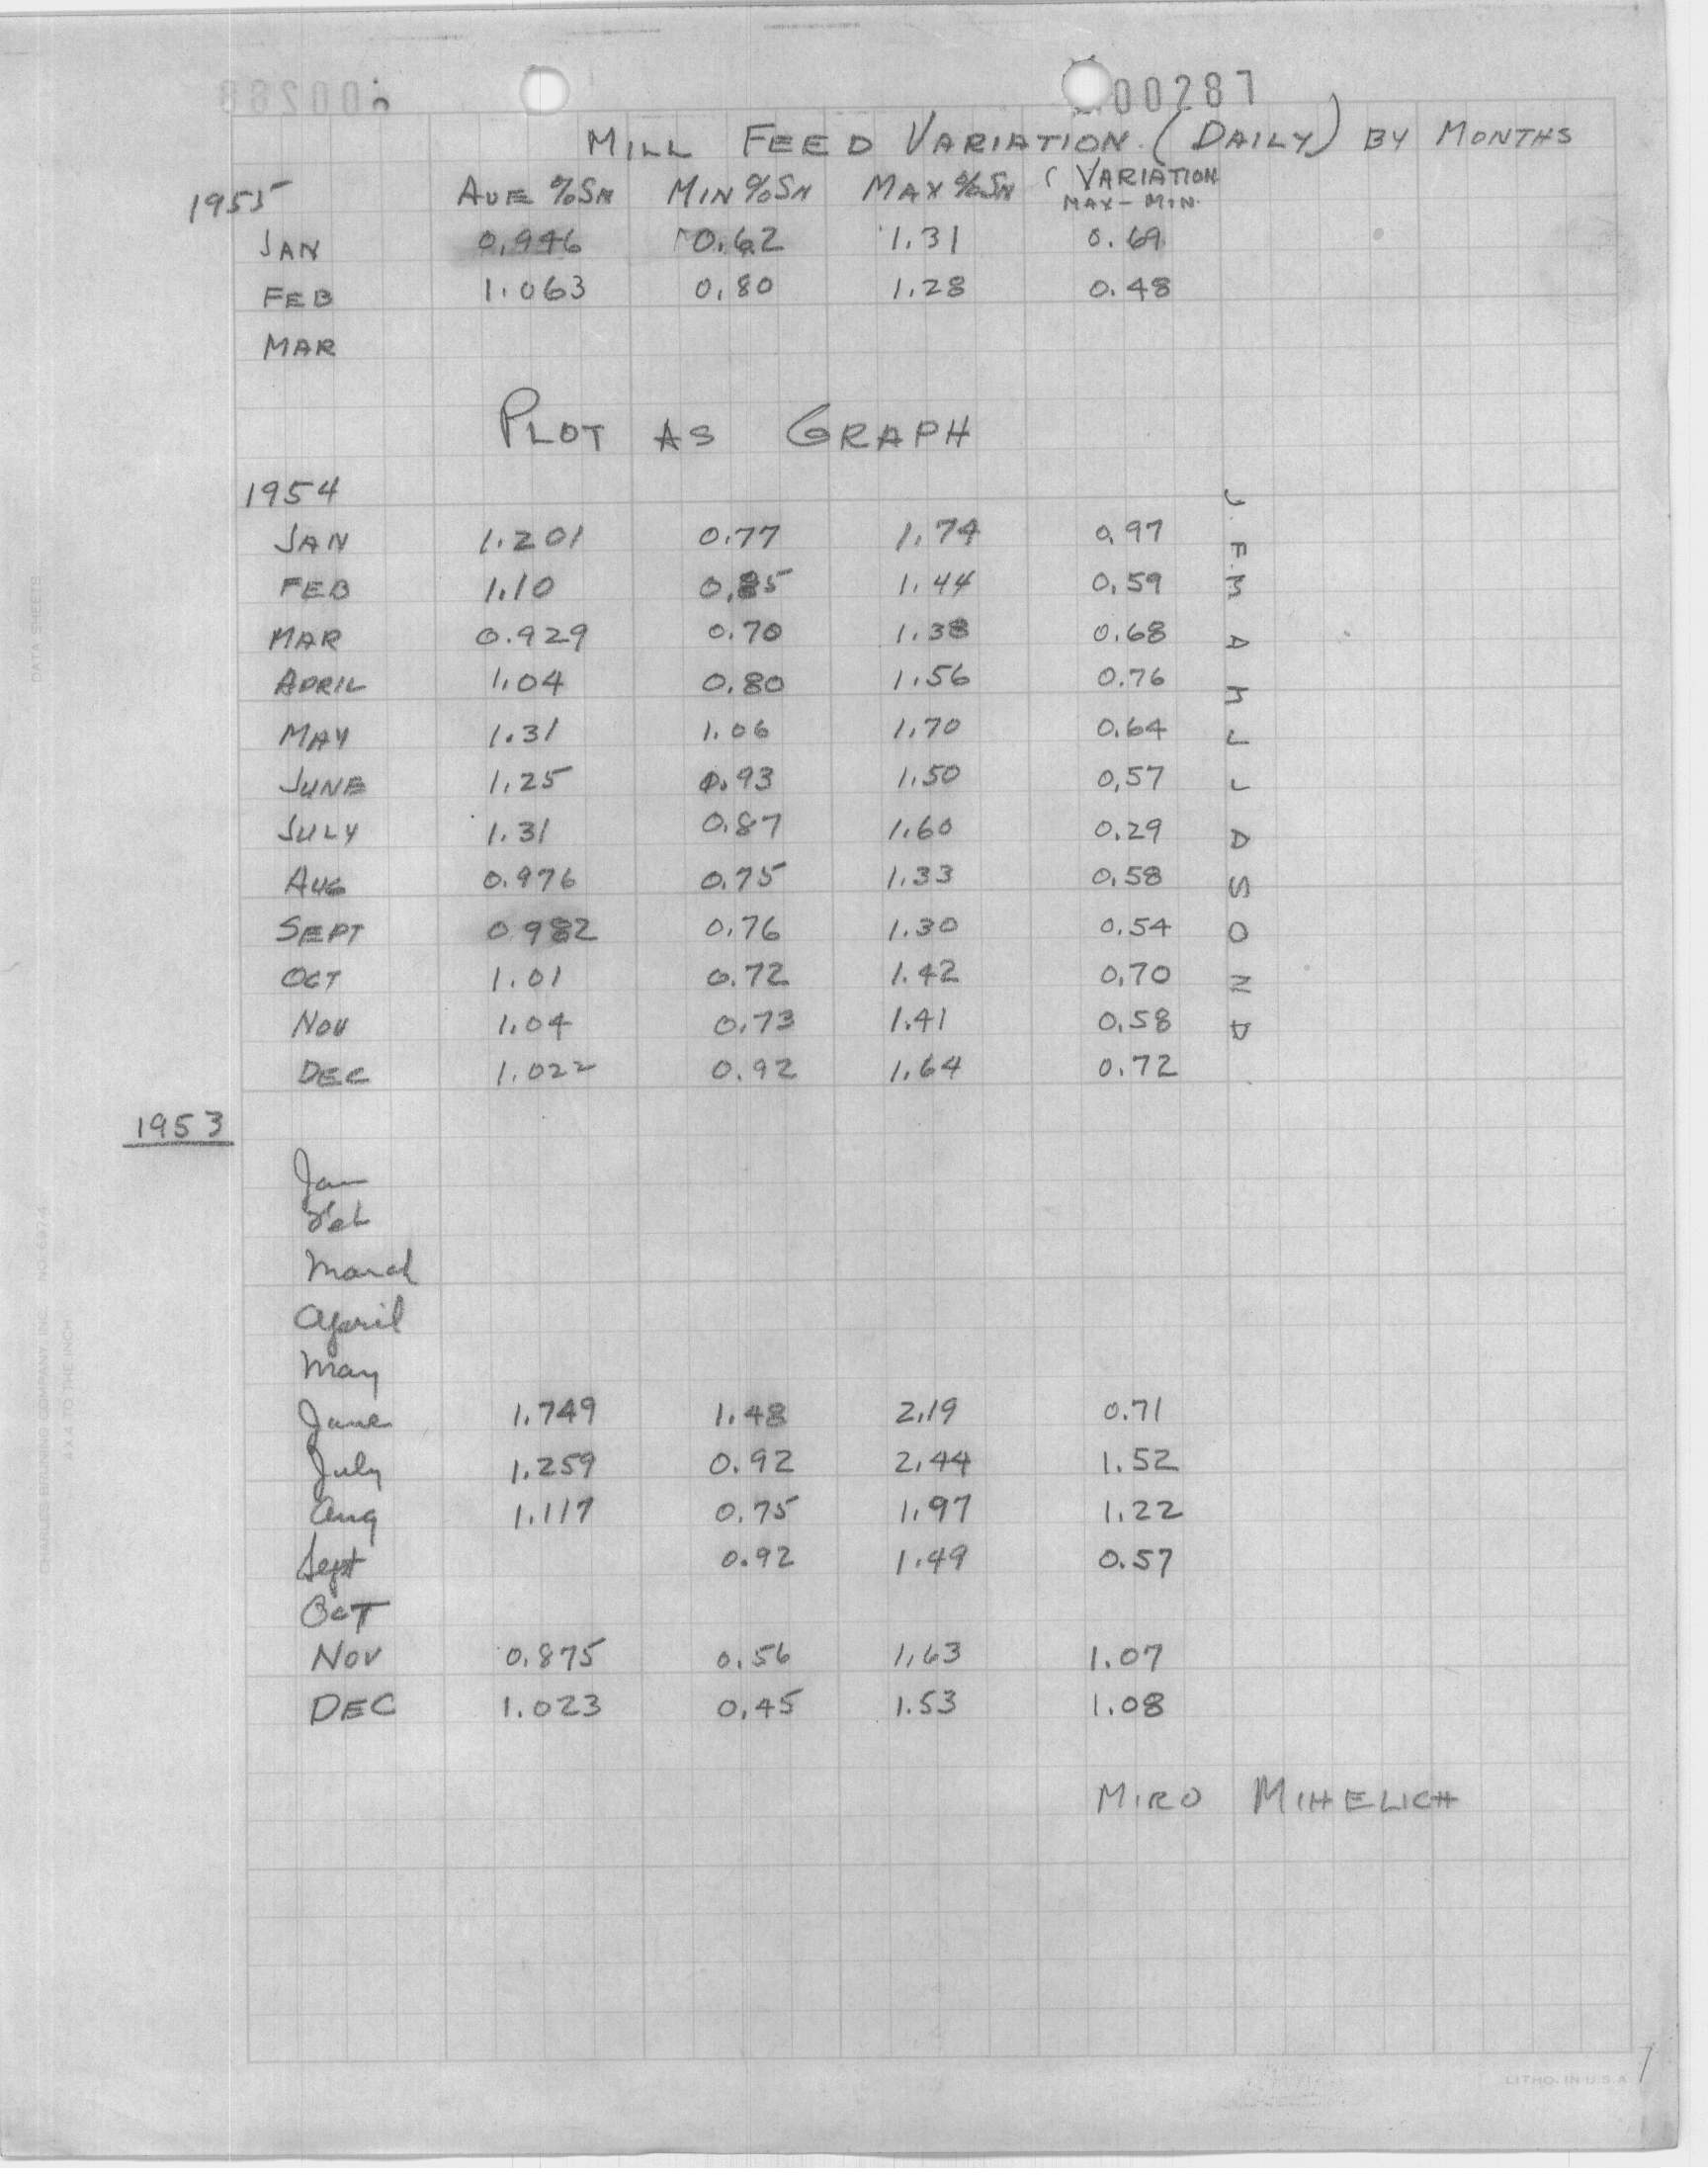 00287
00288
MILL FEED VARIATION (DAILY) BY MONTHS
1955 AVE %SN MIN %SN MAX %SN ( VARIATION
MAX-MIN.
JAN 0.946 0.62 1.31 0.69
FEB 1.063 0.80 1.28 0.48
MAR
PLOT AS GRAPH
1954 J.
JAN 1.201 0.77 1.74 0.97
FEB 1.10 0.85 1.44 0.59
F.M
MAR 0.929 0.70 1.38 0.68 A
APRIL 1.04 0.80 1.56 0.76 M
MAY 1.31 1.06 1.70 0.64 J
JUNE 1.25 0.93 1.50 0.57 J
JULY 1.31 0.87 1.60 0.29 A
AUG 0.976 0.75 1.33 0.58 S
SEPT 0.982 0.76 1.30 0.54 O
OCT 1.01 0.72 1.42 0.70 N
NOV 1.04 0.73 1.41 0.58 D
DEC 1.022 0.92 1.64 0.72
1953
Jan
Feb
March
April
May
June 1.749 1.48 2.19 0.71
July 1.259 0.92 2.44 1.52
Aug 1.117 0.75 1.97 1.22
Sept 0.92 1.49 0.57
OCT
NOV 0.875 0.56 1.63 1.07
DEC 1.023 0.45 1.53 1.08
MIRO MIHELICH
LITHO. IN U.S.A
DATA SHEETS
CHARLES BRUNING COMPANY INC.
4 X 4 TO THE INCH